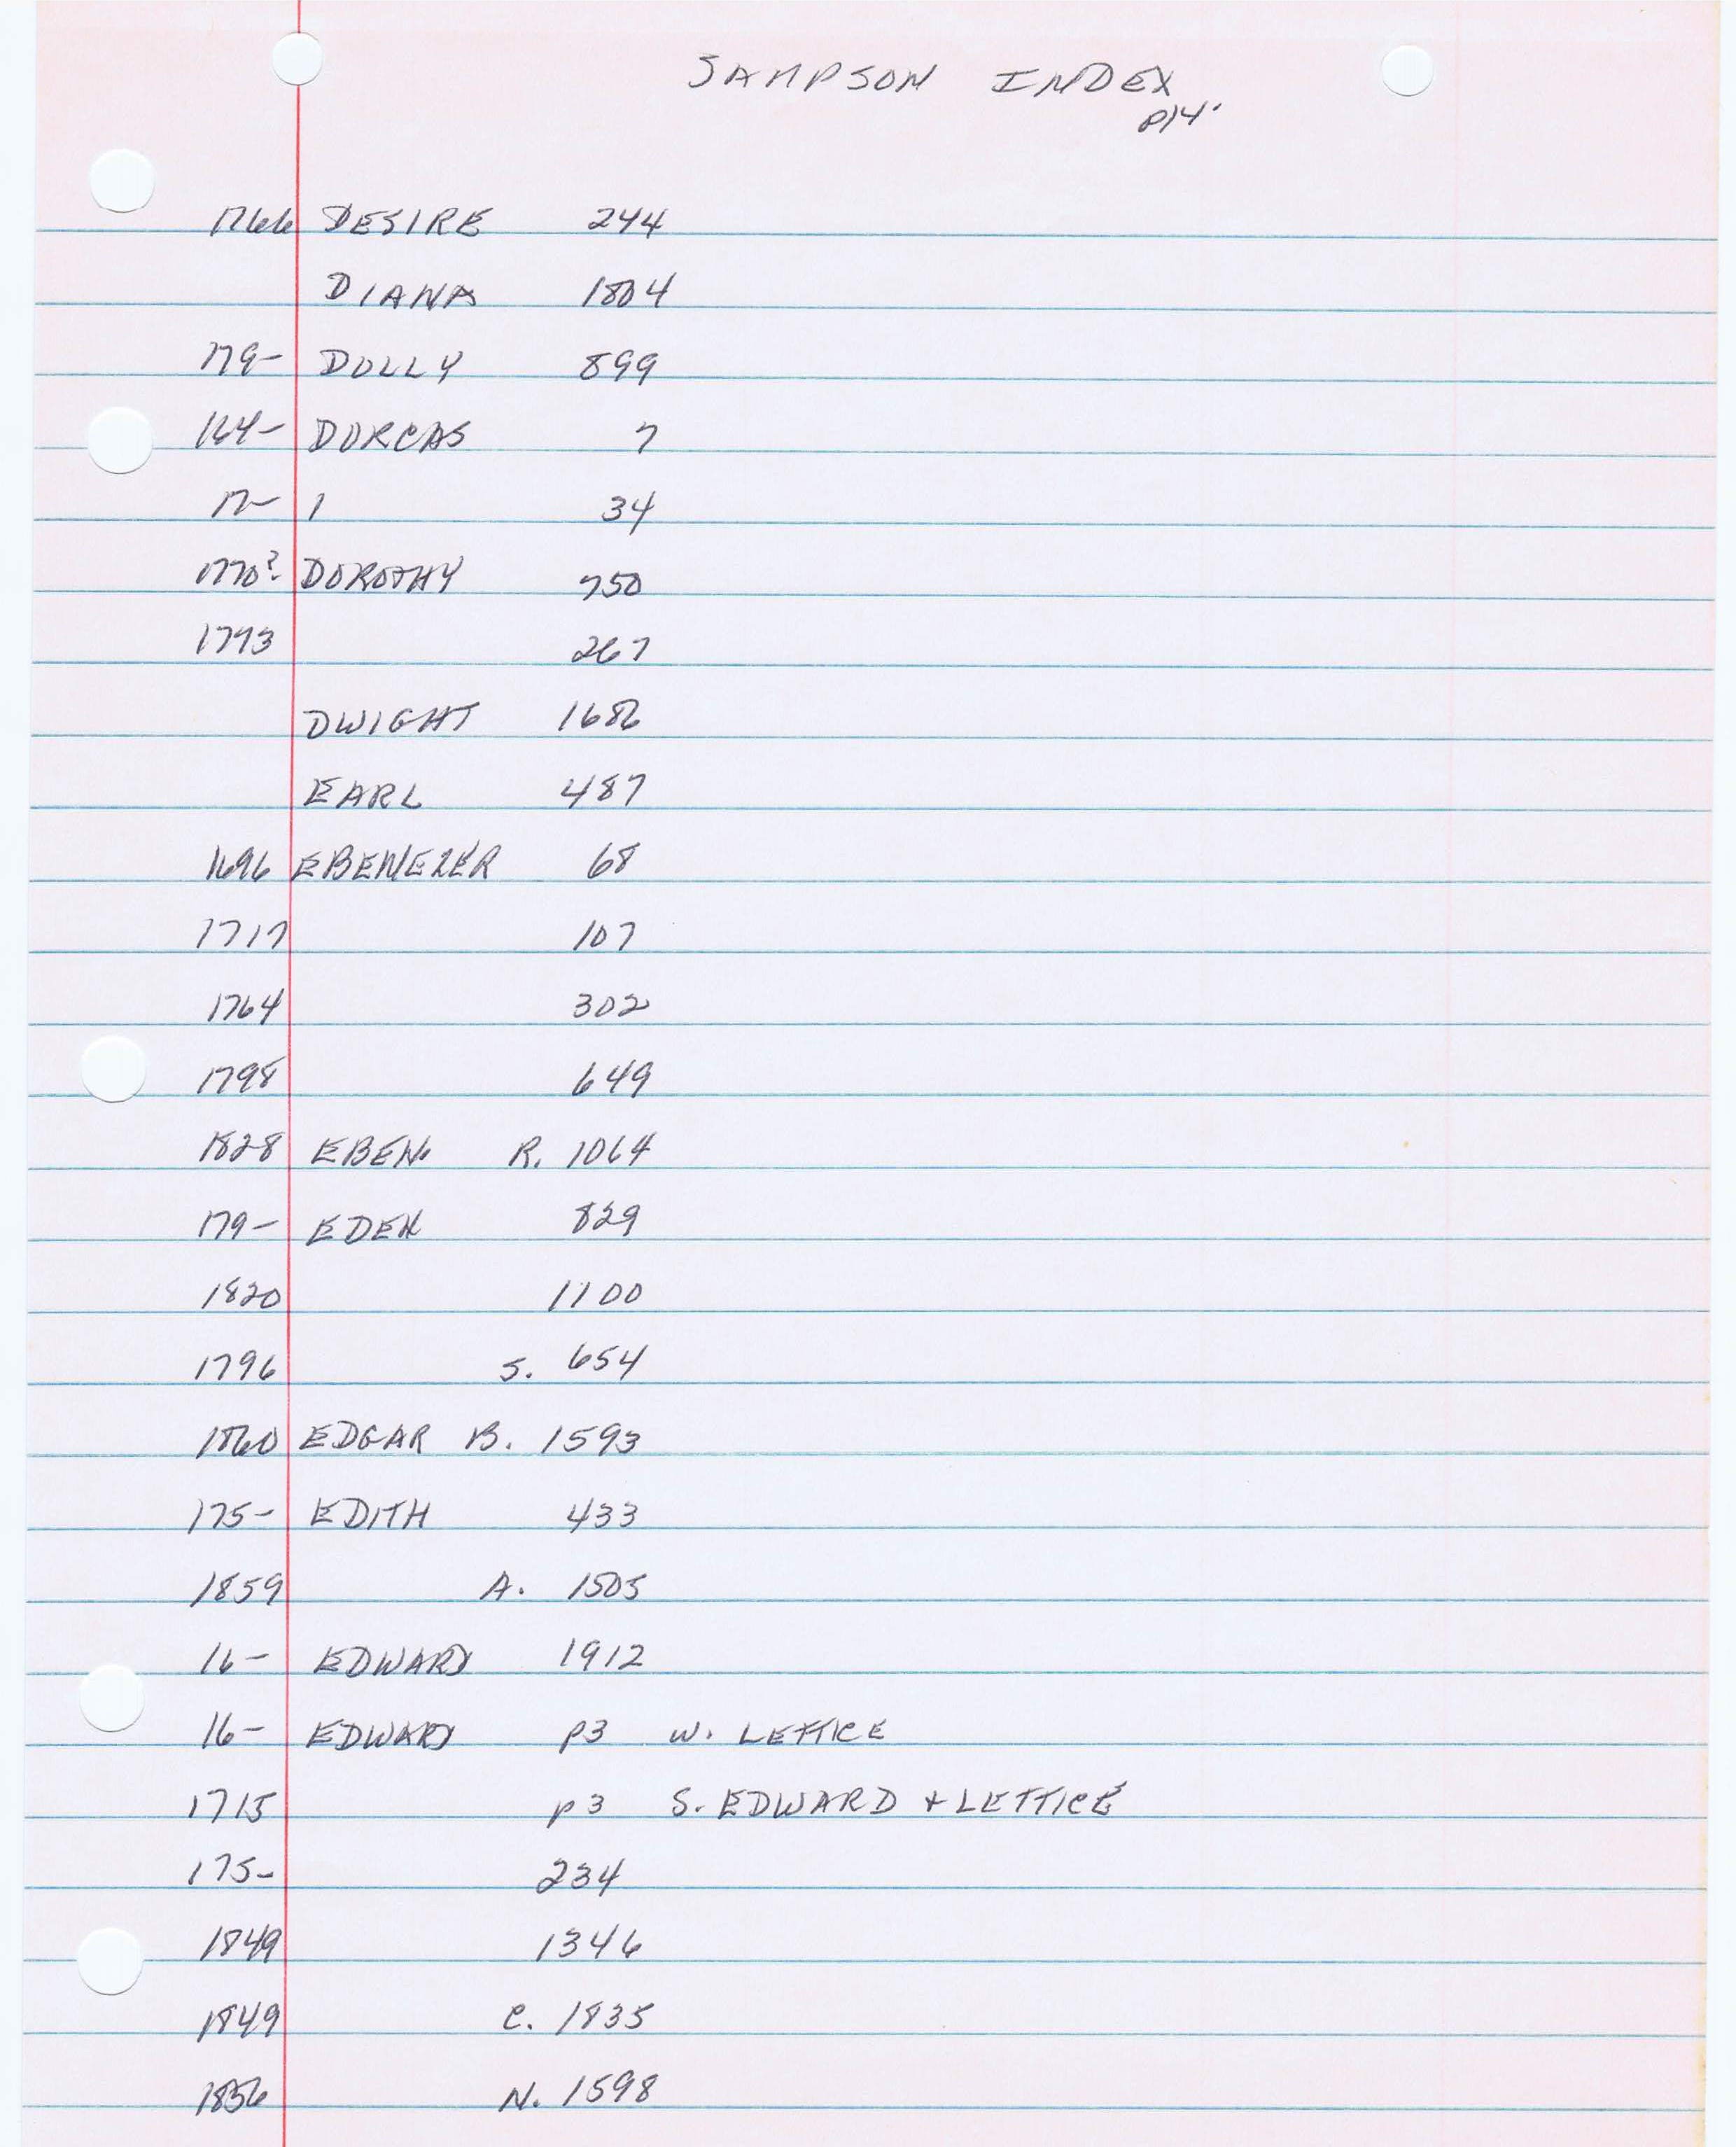 SAMPSON INDEX
p14.
1766 DESIRE 244
DIANA 1804
179- DOLLY 899
164- DORCAS 7
17- 1 34
1770? DOROTHY 750
1793 267
DWIGHT
EARL 487
1696 EBENEZER 68
1717 107
1764 302
1798 649
1828 EBEN. R. 1064
179- EDEN 829
1820 1100
1796 S. 654
1860 EDGAR B. 1593
175- EDITH 433
1859 A. 1505
16- EDWARD 1912
16- EDWARD p3 W. LETTICE
1715 p3 S. EDWARD + LETTICE
175- 234
1849 1346
1849 C. 1835
1856 N. 1598